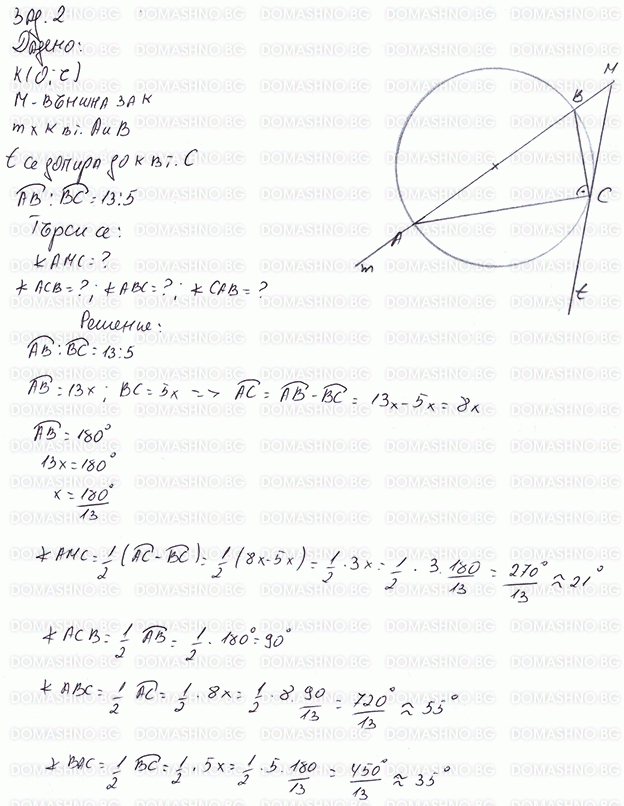 Зад. 2
Дадено:
K(O; r)
M - външна за K
m x K в т. A и B
t се допира до K в т. C
AB : BC = 13:5
Търси се:
∢AMC = ?
∢ACB = ? ; ∢ABC = ? ; ∢CAB = ?
Решение:
AB : BC = 13:5
AB = 13x ; BC = 5x => AC = AB - BC = 13x - 5x = 8x
AB = 180°
13x = 180°
x = 180°/13
∢AMC = 1/2 (AC - BC) = 1/2 (8x - 5x) = 1/2 · 3x = 1/2 · 3 · 180/13 = 270°/13 ≈ 21°
∢ACB = 1/2 AB = 1/2 · 180° = 90°
∢ABC = 1/2 AC = 1/2 · 8x = 1/2 · 8 · 90/13 = 720°/13 ≈ 55°
∢BAC = 1/2 BC = 1/2 · 5x = 1/2 · 5 · 180/13 = 450°/13 ≈ 35°
M
B
C
A
m
t
DOMASHNO.BG